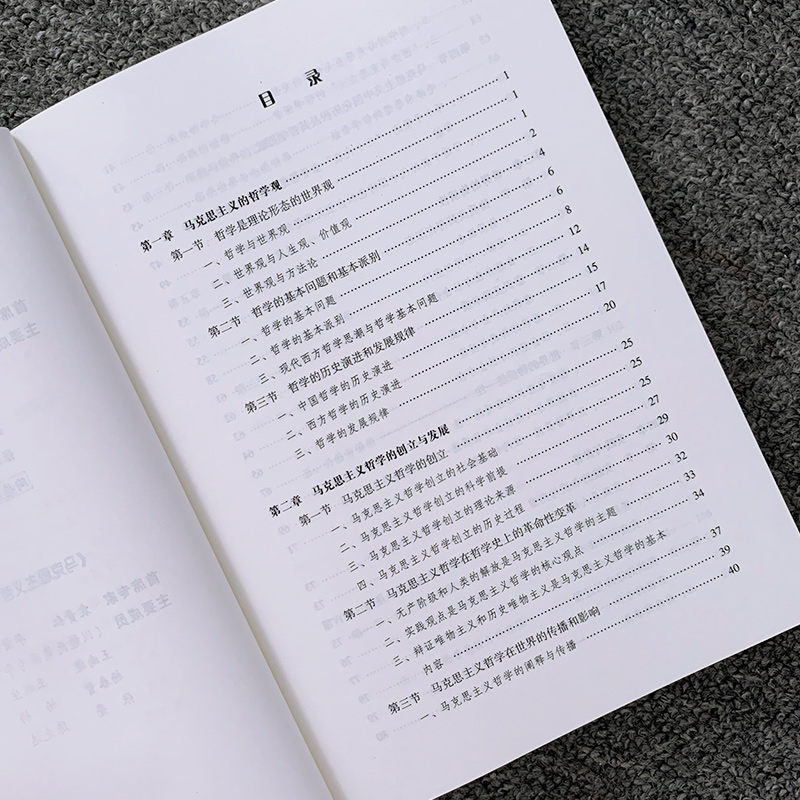 目 录
第一章 马克思主义的哲学观 1
第一节 哲学是理论形态的世界观 1
一、哲学与世界观 1
二、世界观与人生观、价值观 2
三、世界观与方法论 4
第二节 哲学的基本问题和基本派别 6
一、哲学的基本问题 6
二、哲学的基本派别 8
三、现代西方哲学思潮与哲学基本问题 12
第三节 哲学的历史演进和发展规律 14
一、中国哲学的历史演进 15
二、西方哲学的历史演进 17
三、哲学的发展规律 20
第二章 马克思主义哲学的创立与发展 25
第一节 马克思主义哲学的创立 25
一、马克思主义哲学创立的社会基础 25
二、马克思主义哲学创立的科学前提 27
三、马克思主义哲学创立的理论来源 29
四、马克思主义哲学创立的历史过程 30
第二节 马克思主义哲学在哲学史上的革命性变革 32
一、无产阶级和人类的解放是马克思主义哲学的主题 32
二、实践观点是马克思主义哲学的核心观点 34
三、辩证唯物主义和历史唯物主义是马克思主义哲学的基本
内容 37
第三节 马克思主义哲学在世界的传播和影响 39
一、马克思主义哲学的阐释与传播 40